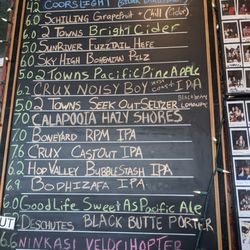 4.2 COORS LIGHT
6.0 SCHILLING Grapefruit + Chill (Cider)
6.0 2 TOWNS BRIGHT CIDER
5.0 SUNRIVER FUZZTAIL HEFE
5.0 SKY HIGH BOHEMIAN PILZ
5.0 2 TOWNS PACIFIC PINEAPPLE
6.2 CRUX NOISY BOY IPA
5.0 2 TOWNS SEEK OUT SELTZER BLACKBERRY LEMONADE
7.0 CALAPOOIA HAZY SHORES
7.0 BONEYARD RPM IPA
7.6 CRUX CASTOUT IPA
6.2 HOP VALLEY BUBBLESTASH IPA
6.9 BODHIZAFA IPA
6.0 GOODLIFE SWEET AS PACIFIC ALE
DESCHUTES BLACK BUTTE PORTER
6.6 NINKASI VELOCIHOPTER